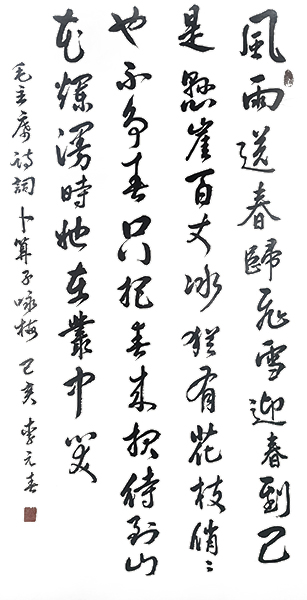 風雨送春歸飛雪迎春到已
是懸崖百丈冰猶有花枝俏々
也不爭春只把春來報待到山
花爛漫時她在叢中笑
毛主席詩詞卜算子咏梅己亥李元春